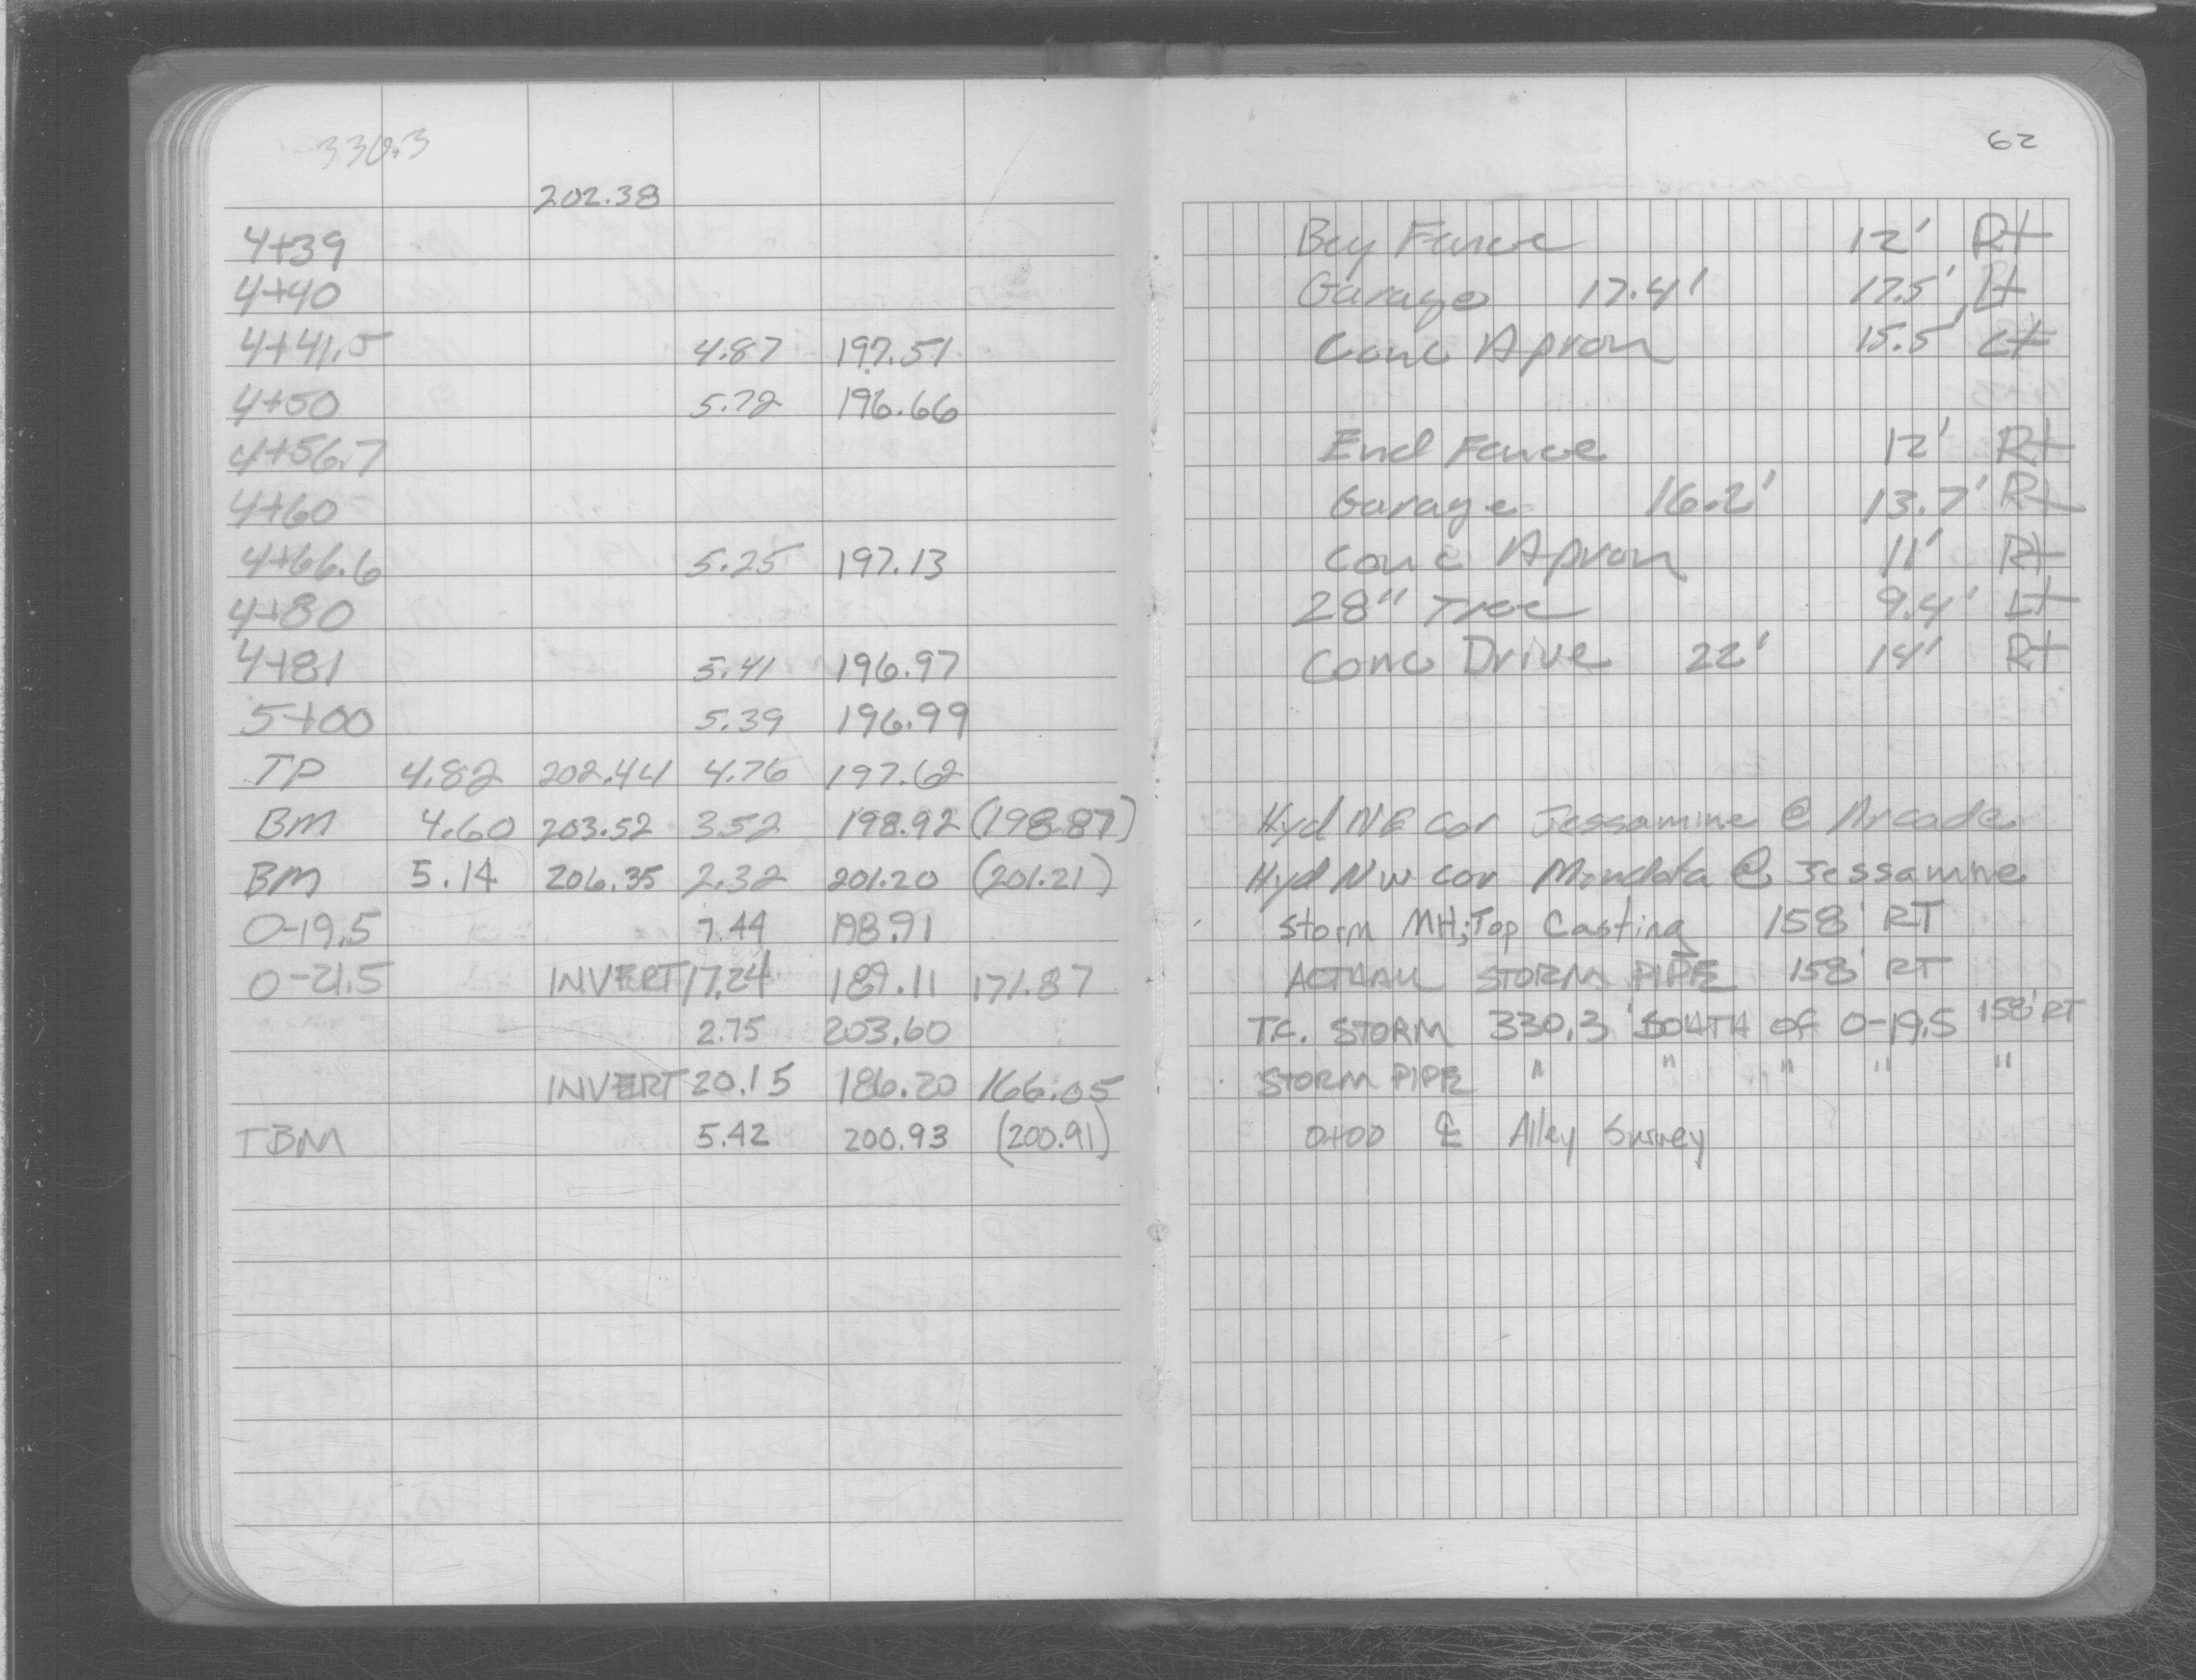 330.3
62
202.38
4+39 Beg Fence 12' Rt
4+40 Garage 17.4' 17.5' Lt
4+41.5 4.87 197.51 Conc Apron 15.5' Lt
4+50 5.72 196.66
4+56.7 End Fence 12' Rt
4+60 Garage 16.2' 13.7' Rt
4+66.6 5.25 197.13 Conc Apron 11' Rt
4+80 28" Tree 9.4' Lt
4+81 5.41 196.97 Conc Drive 22' 14' Rt
5+00 5.39 196.99
TP 4.82 202.44 4.76 197.62
BM 4.60 203.52 3.52 198.92 (198.87) Hyd NE cor Jessamine @ Arcade
BM 5.14 206.35 2.32 201.20 (201.21) Hyd NW cor Mendota @ Jessamine
0-19.5 7.44 198.91 Storm MH; Top Casting 158' RT
0-21.5 INVERT 17.24 189.11 171.87 ACTUAL STORM PIPE 158' RT
2.75 203.60 T.C. STORM 330.3' SOUTH of 0-19.5 158' RT
INVERT 20.15 186.20 166.05 STORM PIPE " " " " "
TBM 5.42 200.93 (200.91) 0+00 ℄ Alley Survey